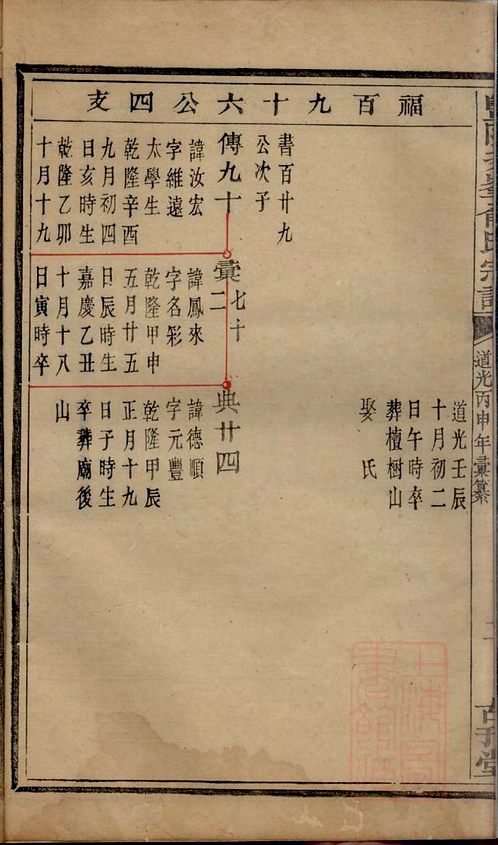 福百九十六公四支
道光壬辰
十月初二
日午時卒
葬檀樹山
娶氏
書百廿九
公次子
傳九十
諱汝宏
字維遠
太學生
乾隆辛酉
九月初四
日亥時生
乾隆乙卯
十月十九
彙二
七十
諱鳳來
字名彩
乾隆甲申
五月廿五
日辰時生
嘉慶乙丑
十月十八
日寅時卒
典廿四
諱德順
字元豐
乾隆甲辰
正月十九
日子時生
卒葬廟後
山
道光丙申年彙纂